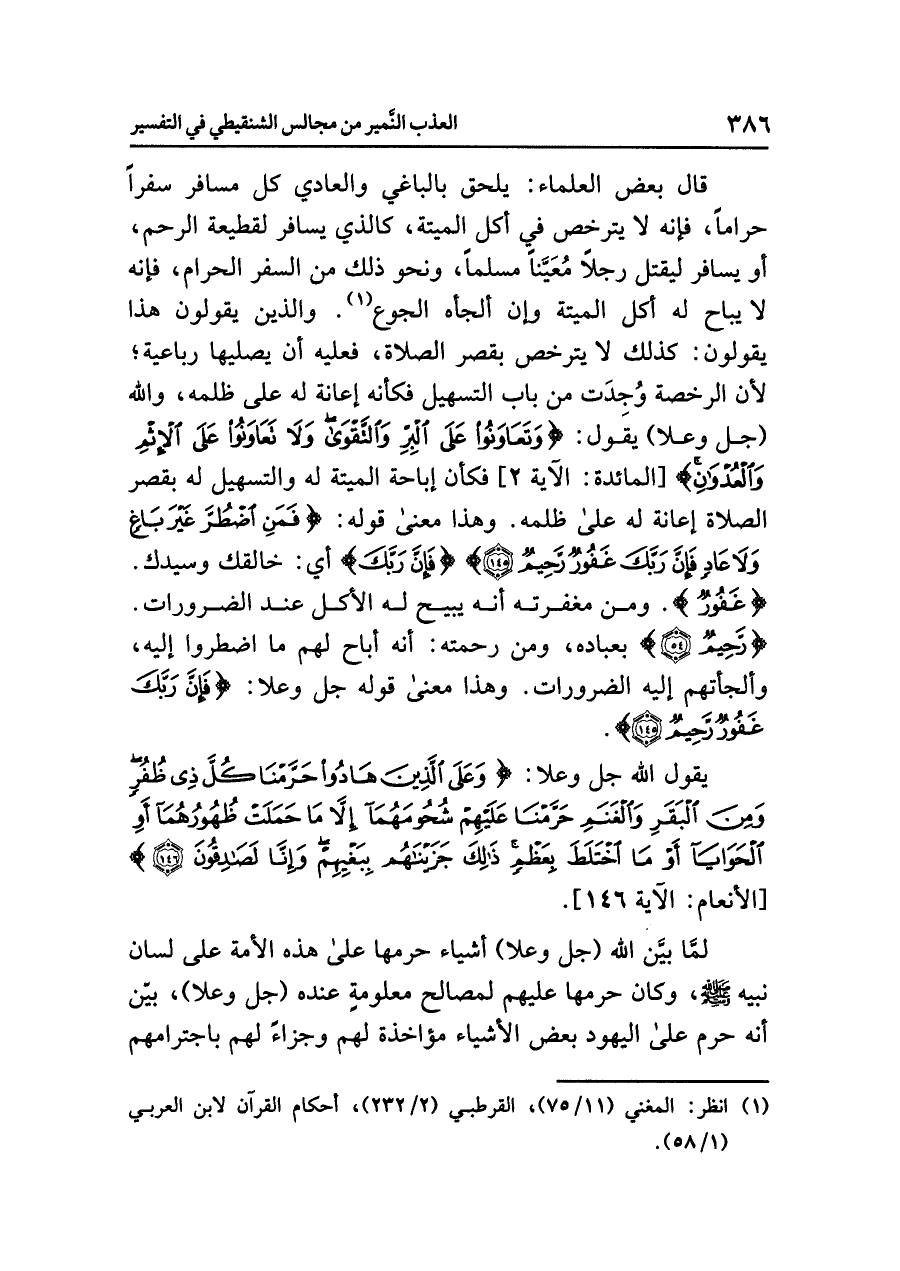 ٣٨٦ العذب النَّمير من مجالس الشنقيطي في التفسير
قال بعض العلماء: يلحق بالباغي والعادي كل مسافر سفراً
حراماً، فإنه لا يترخص في أكل الميتة، كالذي يسافر لقطيعة الرحم،
أو يسافر ليقتل رجلاً مُعَيَّناً مسلماً، ونحو ذلك من السفر الحرام، فإنه
لا يباح له أكل الميتة وإن ألجأه الجوع(١). والذين يقولون هذا
يقولون: كذلك لا يترخص بقصر الصلاة، فعليه أن يصليها رباعية؛
لأن الرخصة وُجِدَت من باب التسهيل فكأنه إعانة له على ظلمه، والله
(جل وعلا) يقول: ﴿وَتَعَاوَنُوا۟ عَلَى ٱلْبِرِّ وَٱلتَّقْوَىٰۖ وَلَا تَعَاوَنُوا۟ عَلَى ٱلْإِثْمِ
وَٱلْعُدْوَٰنِۚ﴾ [المائدة: الآية ٢] فكأن إباحة الميتة له والتسهيل له بقصر
الصلاة إعانة له علىٰ ظلمه. وهذا معنىٰ قوله: ﴿فَمَنِ ٱضْطُرَّ غَيْرَ بَاغٍ
وَلَا عَادٍ فَإِنَّ رَبَّكَ غَفُورٌ رَّحِيمٌ ١٤٥﴾ ﴿فَإِنَّ رَبَّكَ﴾ أي: خالقك وسيدك.
﴿غَفُورٌ﴾. ومن مغفرته أنه يبيح له الأكل عند الضرورات.
﴿رَّحِيمٌ ٥٤﴾ بعباده، ومن رحمته: أنه أباح لهم ما اضطروا إليه،
وألجأتهم إليه الضرورات. وهذا معنىٰ قوله جل وعلا: ﴿فَإِنَّ رَبَّكَ
غَفُورٌ رَّحِيمٌ ١٤٥﴾.
يقول الله جل وعلا: ﴿وَعَلَى ٱلَّذِينَ هَادُوا۟ حَرَّمْنَا كُلَّ ذِى ظُفُرٍۖ
وَمِنَ ٱلْبَقَرِ وَٱلْغَنَمِ حَرَّمْنَا عَلَيْهِمْ شُحُومَهُمَآ إِلَّا مَا حَمَلَتْ ظُهُورُهُمَآ أَوِ
ٱلْحَوَايَآ أَوْ مَا ٱخْتَلَطَ بِعَظْمٍۚ ذَٰلِكَ جَزَيْنَٰهُم بِبَغْيِهِمْۖ وَإِنَّا لَصَٰدِقُونَ ١٤٦﴾
[الأنعام: الآية ١٤٦].
لمَّا بيَّن الله (جل وعلا) أشياء حرمها علىٰ هذه الأمة على لسان
نبيه ﷺ، وكان حرمها عليهم لمصالح معلومةٍ عنده (جل وعلا)، بيّن
أنه حرم علىٰ اليهود بعض الأشياء مؤاخذة لهم وجزاءً لهم باجترامهم
(١) انظر: المغني (١١/ ٧٥)، القرطبي (٢/ ٢٣٢)، أحكام القرآن لابن العربي
(١/ ٥٨).